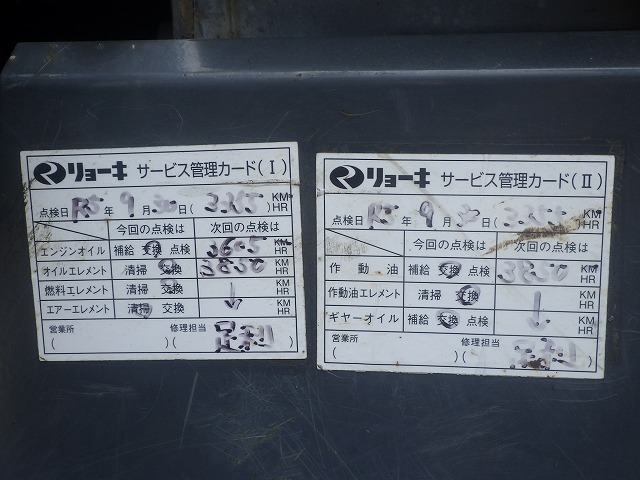 リョーキ サービス管理カード(Ⅰ)
点検日 R5年 9月 30日( ) KM HR
今回の点検は 次回の点検は
エンジンオイル 補給 交換 点検 KM HR
オイルエレメント 清掃 交換 3850
燃料エレメント 清掃 交換 ↓ KM HR
エアーエレメント 清掃 交換
営業所 修理担当
( )( 足利 )
リョーキ サービス管理カード(Ⅱ)
点検日 R5年 9月 30日( ) KM HR
今回の点検は 次回の点検は
作動油 補給 交換 点検 3850 KM HR
作動油エレメント 清掃 交換 ↓ KM HR
ギヤーオイル 補給 交換 点検 KM HR
営業所 修理担当
( )( 足利 )